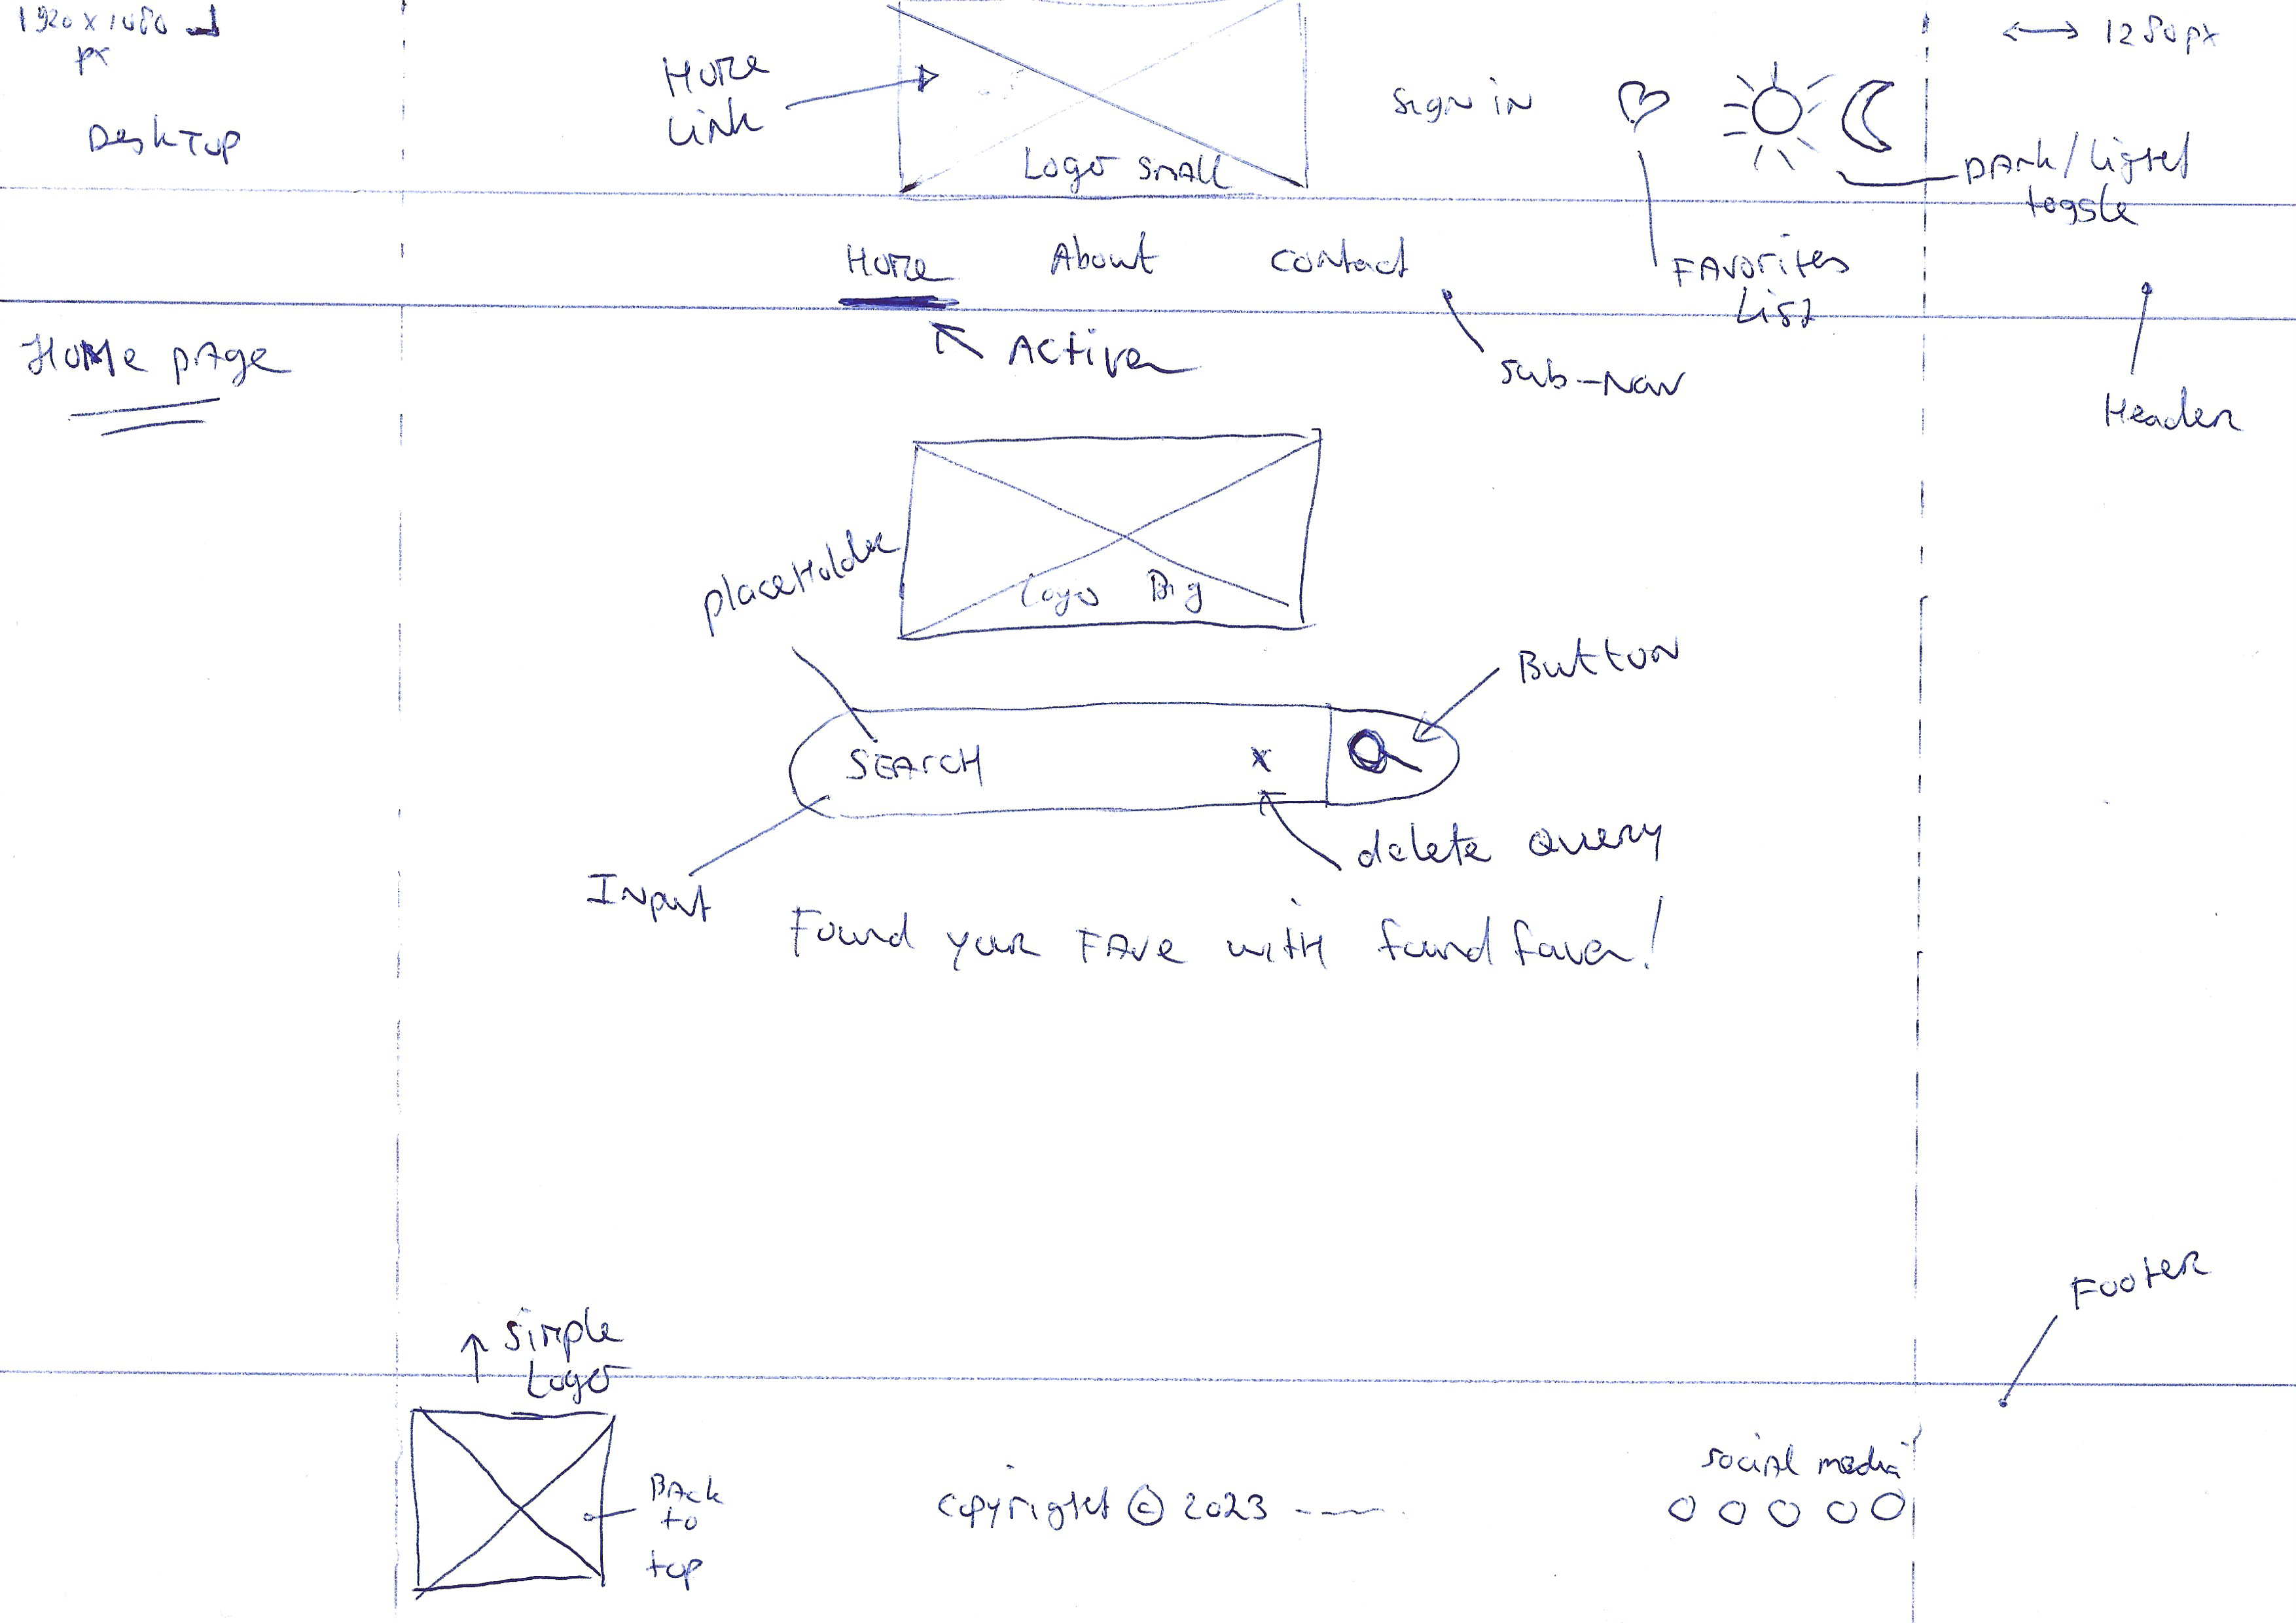 1920 x 1080
px
Desktop
Home
Link
Logo small
Sign in
1280px
Dark/Light
toggle
Home
About
Contact
Favorites
List
Home page
Active
Sub-Nav
Header
placeholder
Logo Big
Button
SEARCH
x
delete Query
Input
Found your FAve with foundfave!
Simple
Logo
Footer
Back
to
top
copyright © 2023
social media